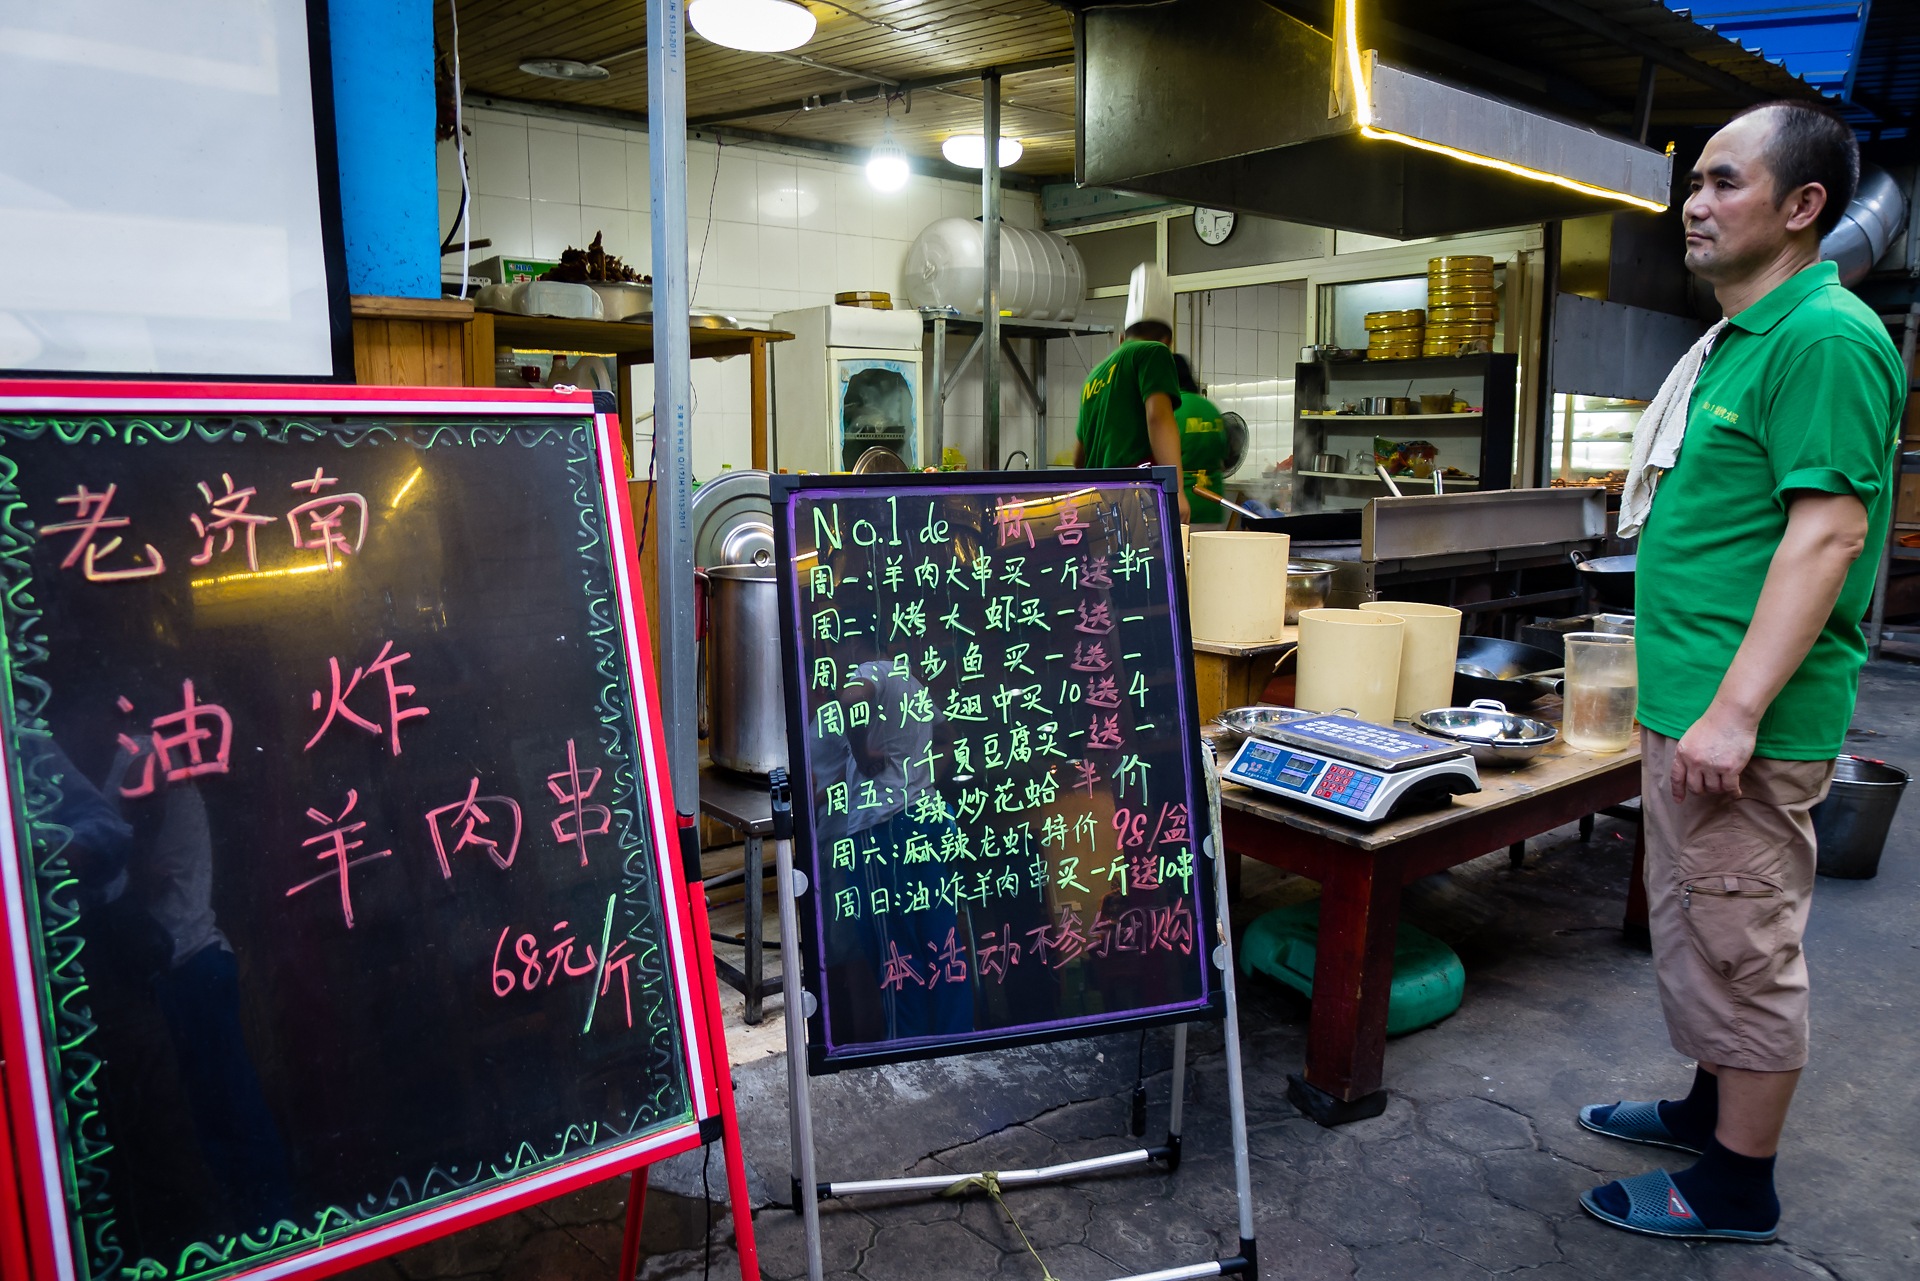 老济南
油炸
羊肉串
68元/斤
No.1 de 惊喜
周一:羊肉大串买一斤送半斤
周二:烤大虾买一送一
周三:马步鱼买一送一
周四:烤翅中买10送4
周五:千页豆腐买一送一
辣炒花蛤半价
周六:麻辣龙虾特价98/盆
周日:油炸羊肉串买一斤送10串
本活动不参与团购
No.1
No.1